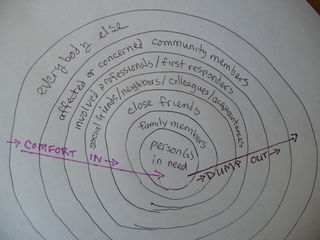 everybody else
affected or concerned community members
involved professionals/first responders
social friends/neighbors/colleagues/acquaintances
close friends
family members
person(s)
in need
→ COMFORT IN →
→ DUMP OUT →